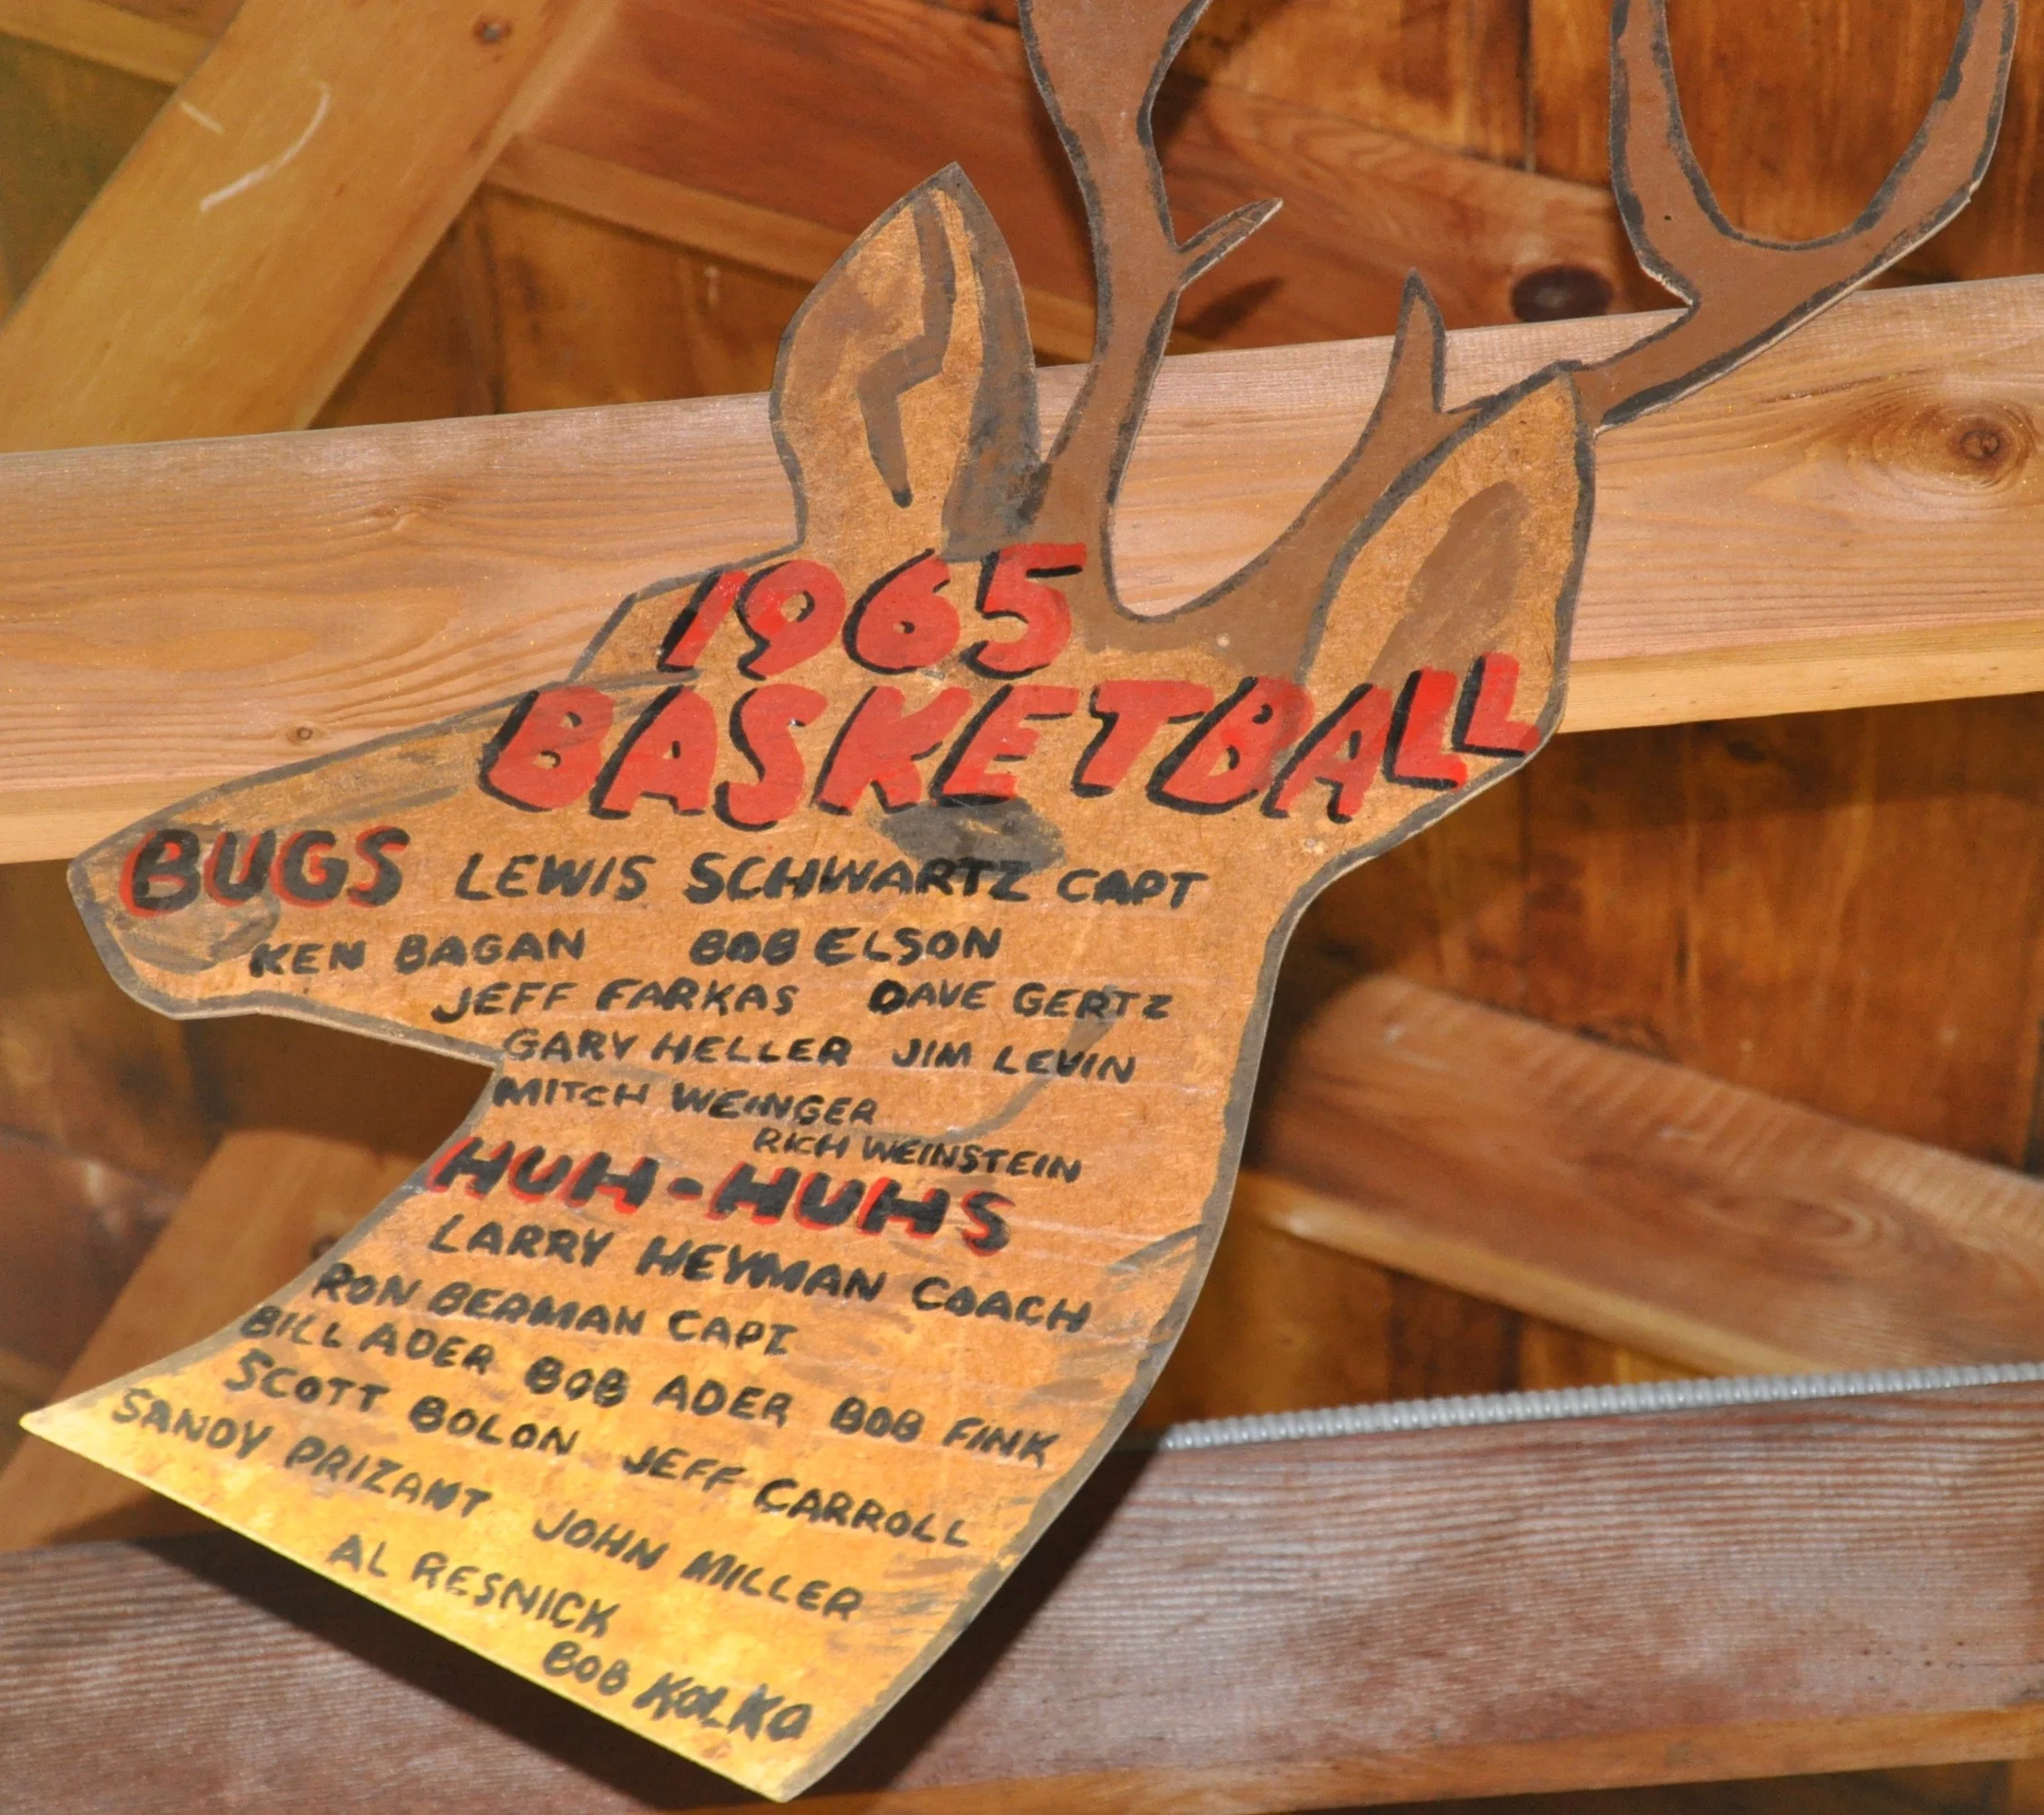 1965
BASKETBALL
BUGS LEWIS SCHWARTZ CAPT
KEN BAGAN BOB ELSON
JEFF FARKAS DAVE GERTZ
GARY HELLER JIM LEVIN
MITCH WEINGER
RICH WEINSTEIN
HUH-HUHS
LARRY HEYMAN COACH
RON BERMAN CAPT
BILL ADER BOB ADER BOB FINK
SCOTT BOLON JEFF CARROLL
SANDY PRIZANT JOHN MILLER
AL RESNICK
BOB KOLKO